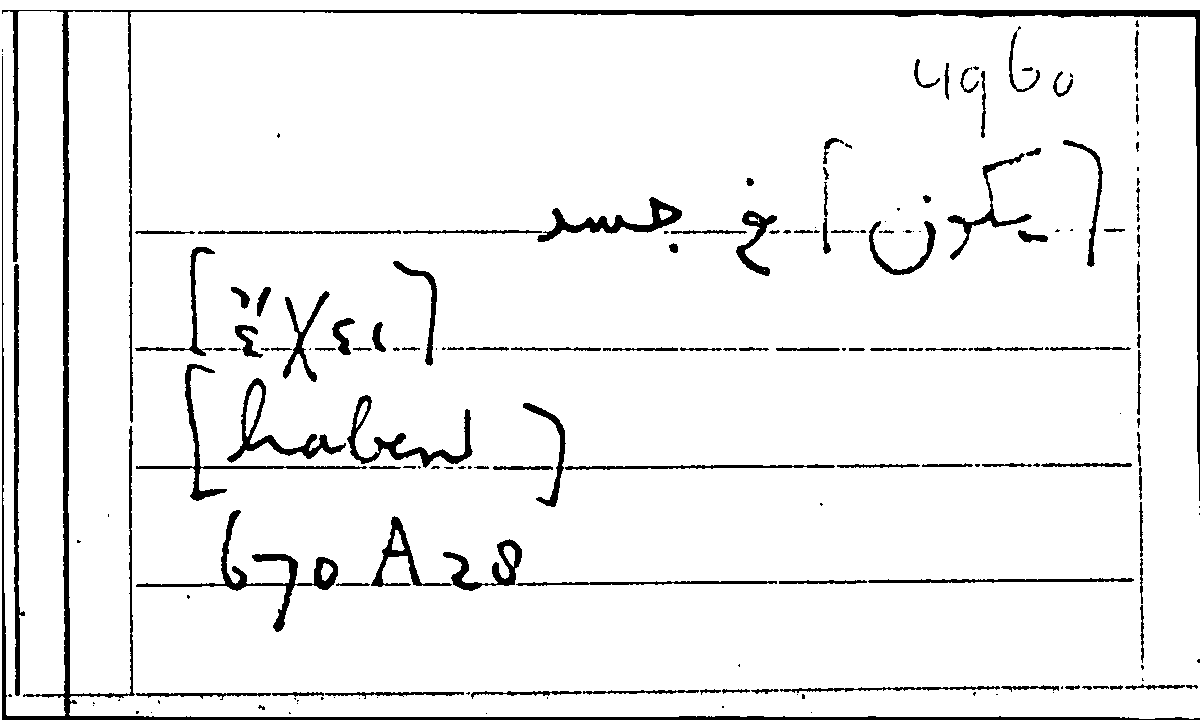 4960
[يكون] في جسم
[ἔχει]
[haben]
670 A 28